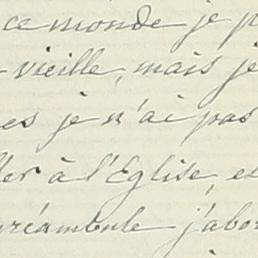 ce monde je p
vieille, mais je
es je n'ai pas
ler à l'Eglise, es
réambule j'abor